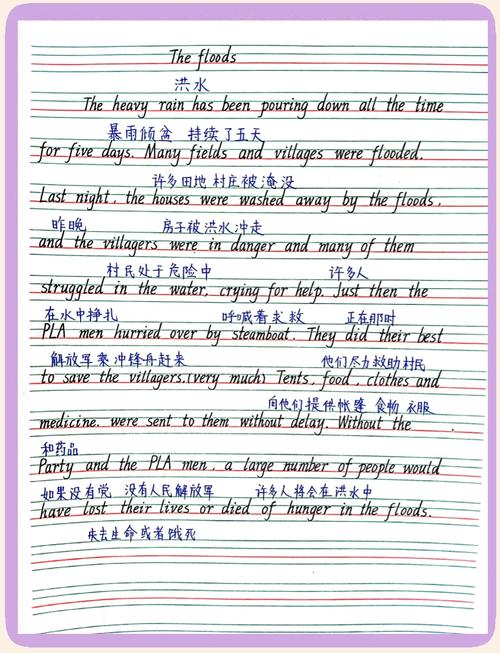 The floods
洪水
The heavy rain has been pouring down all the time
暴雨倾盆 持续了五天
for five days. Many fields and villages were flooded.
许多田地 村庄被淹没
Last night, the houses were washed away by the floods,
昨晚 房子被洪水冲走
and the villagers were in danger and many of them
村民处于危险中 许多人
struggled in the water, crying for help. Just then the
在水中挣扎 呼喊着求救 正在那时
PLA men hurried over by steamboat. They did their best
解放军乘冲锋舟赶来 他们尽力救助村民
to save the villagers.(very much) Tents, food, clothes and
向他们提供帐篷 食物 衣服
medicine. were sent to them without delay. Without the
和药品
Party and the PLA men, a large number of people would
如果没有党 没有人民解放军 许多人将会在洪水中
have lost their lives or died of hunger in the floods.
失去生命或者饿死